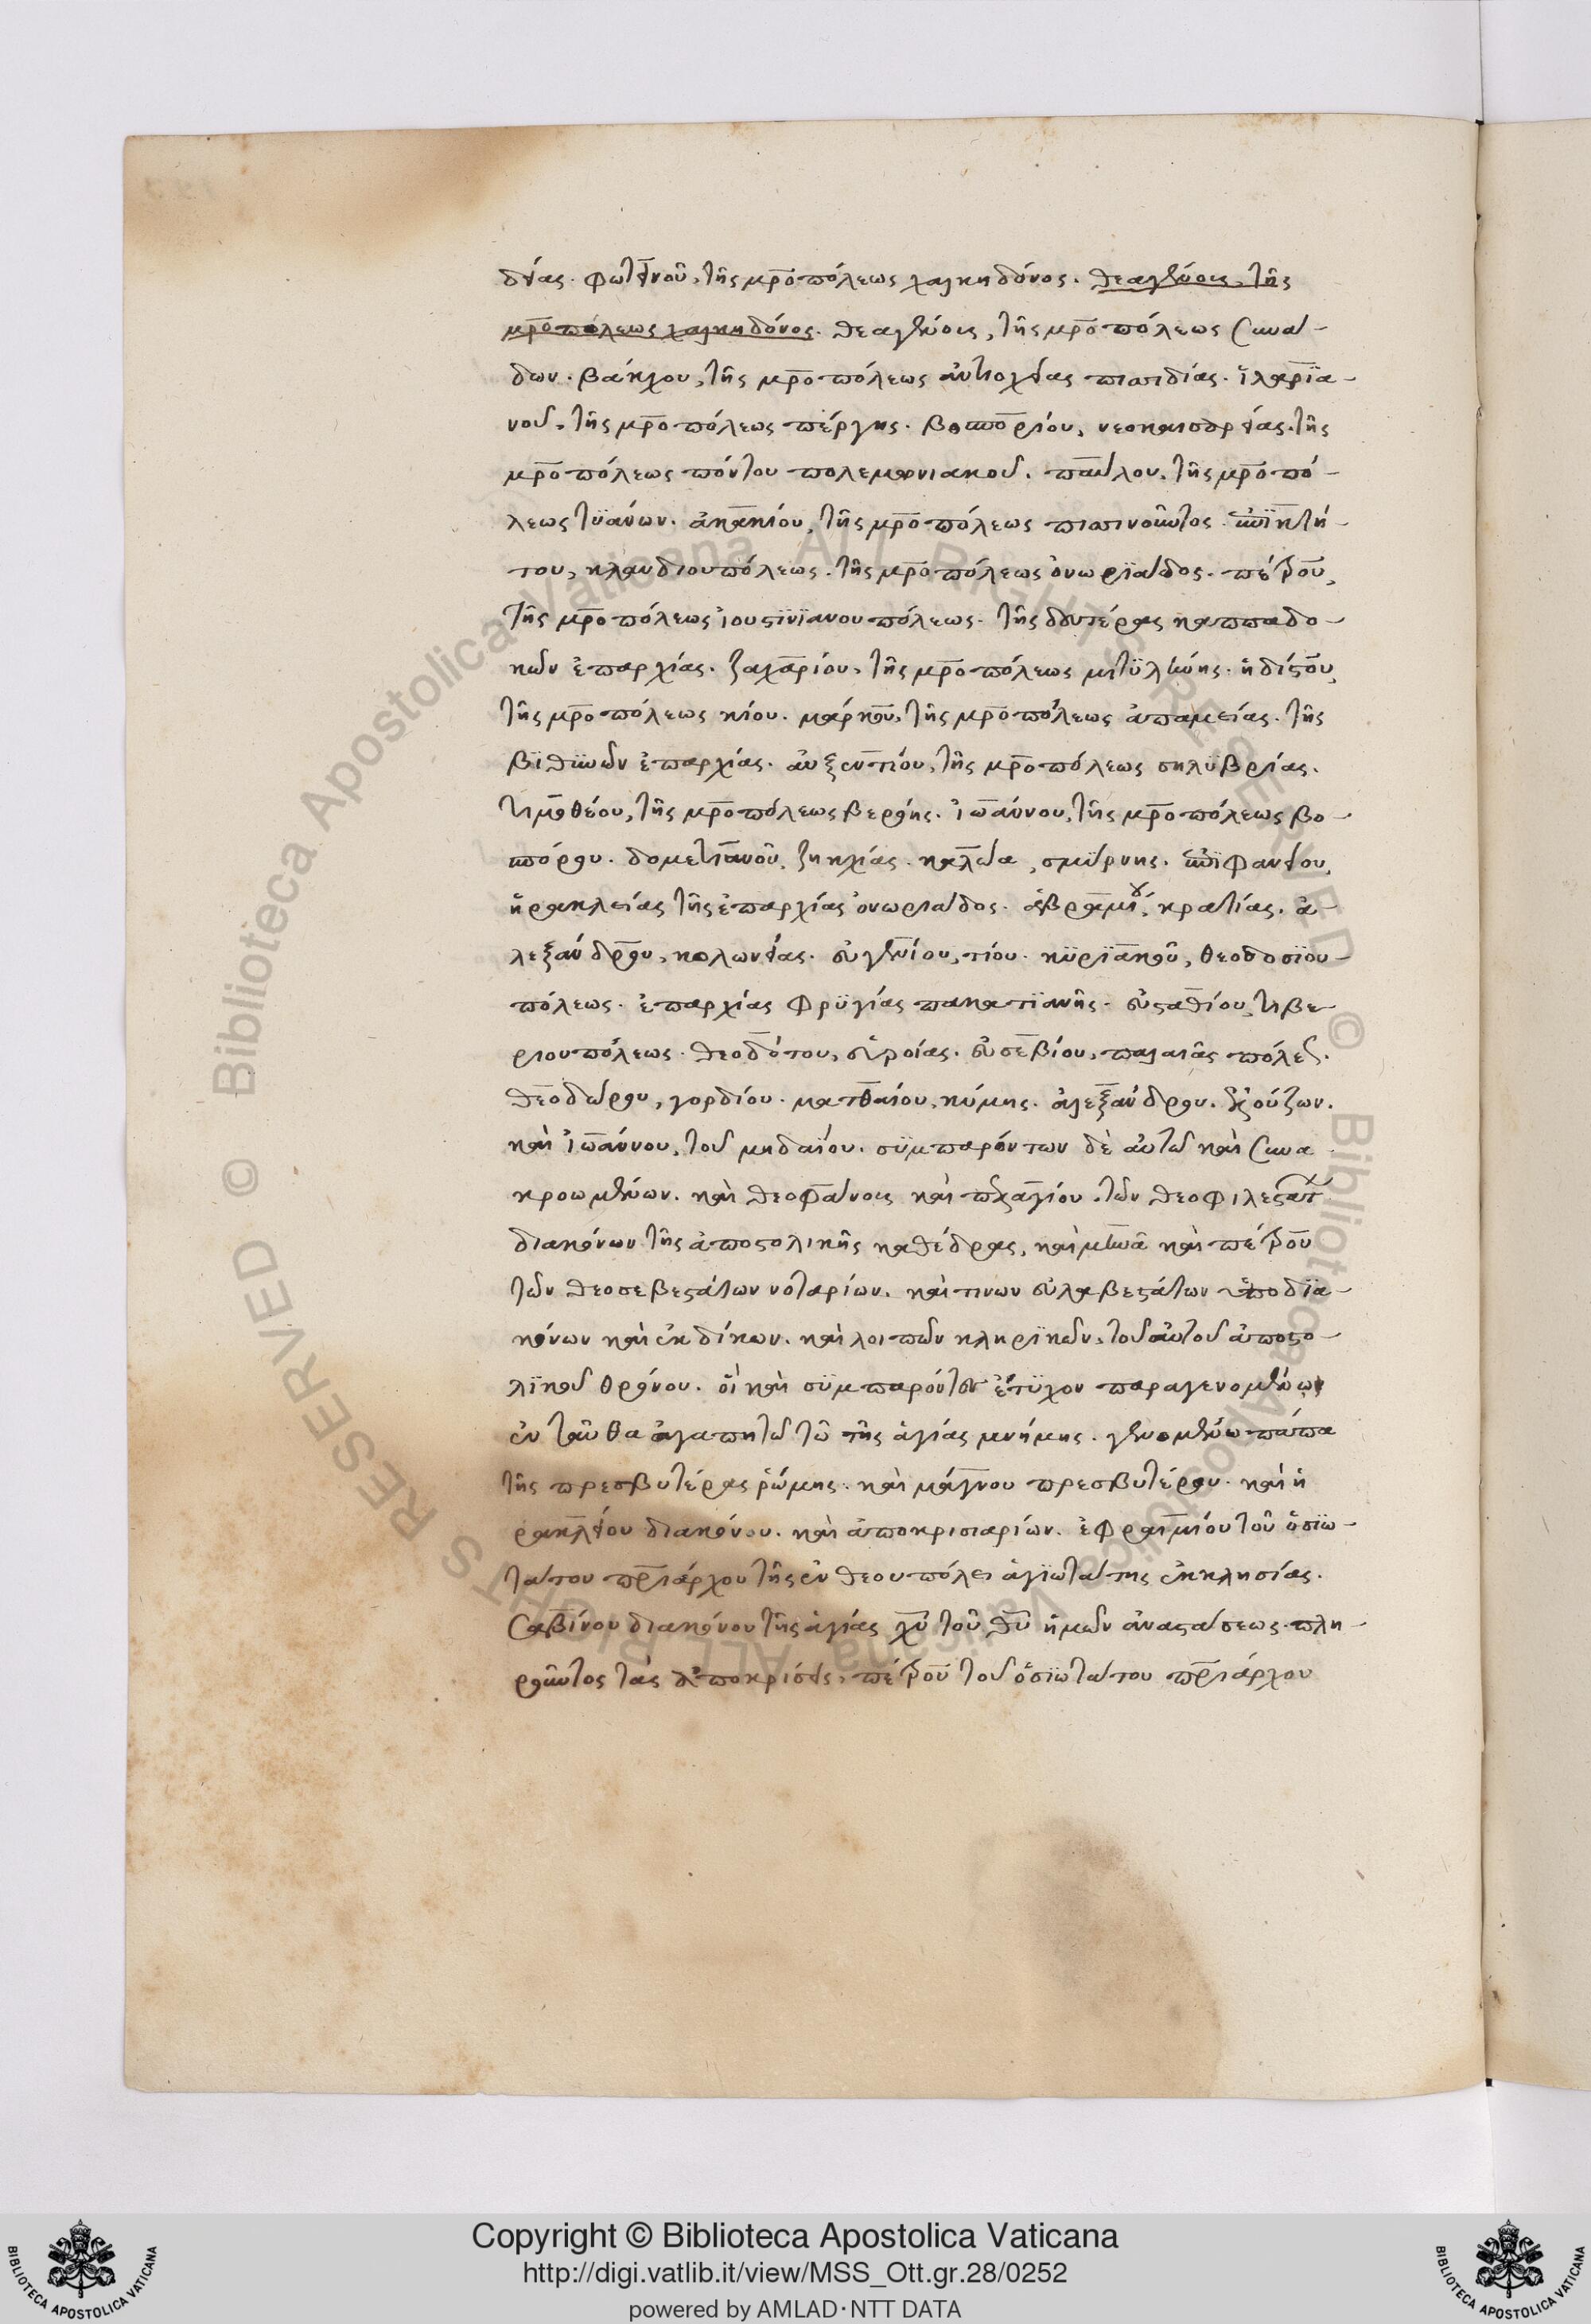 δείας. φωτεινοῦ, τῆς μρο πόλεως χαλκηδόνος. θεαγένους, τῆς
μροπόλεως χαλκηδόνος. θεαγένους, τῆς μροπόλεως συνά-
δων. βάκχου, τῆς μροπόλεως ἀντιοχείας πισιδίας. ἱλαρϊα-
νοῦ, τῆς μροπόλεως πέργης. βοσπορίου, νεοκαισαρείας. τῆς
μροπόλεως πόντου πολεμωνιακοῦ. παύλου, τῆς μροπό-
λεως τϋάνων. ἀκακίου, τῆς μροπόλεως πισινοῦντος. ἐπϊκτή-
του, κλαυδιουπόλεως. τῆς μροπόλεως ὀνωρϊάδος. πέτρου,
τῆς μροπόλεως ἰουστϊνϊανουπόλεως. τῆς δευτέρας καππαδο-
κῶν ἐπαρχίας. ζαχαρίου, τῆς μροπόλεως μιτϋλήνης. ἡδίστου,
τῆς μροπόλεως κίου. μάρκου, τῆς μροπόλεως ἀπαμείας. τῆς
βϊθϋνῶν ἐπαρχίας. αὐξεντίου, τῆς μροπόλεως σηλυβρίας.
τιμοθέου, τῆς μροπόλεως βερόης. ἰωάννου, τῆς μροπόλεως βο-
σπόρου. δομετιανοῦ, ζηκχίας. καλωα, σμϋρνης. ἐπϊφανείου,
ἡρακλείας τῆς ἐπαρχίας ὀνωριάδος. ἀβρααμίου, κρατίας. ἀ-
λεξάνδρου, κολωνείας. εὐγενίου, τίου. κϋρϊακοῦ, θεοδοσϊου-
πόλεως. ἐπαρχίας φρϋγίας πακατϊανῆς. εὐσταθίου, τιβε-
ριουπόλεως. θεοδότου, σερροίας. εὐσεβίου, παλαιᾶς πόλεως.
θεοδώρου, γορδίου. ματθαίου, κύμης. ἀλεξάνδρου, ζούζων.
καὶ ἰωάννου, τοῦ μηδαϊου. σϋμπαρόντων δὲ αὐτῶ καὶ συνα
κροωμένων. καὶ θεοφάνους καὶ πελαγίου. τῶν θεοφιλεστάτων
διακόνων τῆς ἀποστολικῆς καθέδρας, καὶ μηνᾶ καὶ πέτρου
τῶν θεοσεβεστάτων νοταρίων. καὶ τινων εὐλαβεστάτων ὑποδϊα-
κόνων καὶ ἐκδίκων. καὶ λοιπῶν κληρϊκῶν, τοῦ αὐτοῦ ἀποστο-
λϊκοῦ θρόνου. οἳ καὶ σϋμπαρόντες ἔτϋχον παραγενομένω
ἐνταῦθα ἀγαπητῶ τῶ τῆς ἁγίας μνήμης. γενομένω πάπα
τῆς πρεσβυτέρας ῥώμης. καὶ μάγνου πρεσβυτέρου. καὶ ἡ
ρακλείου διακόνου. καὶ ἀποκρισιαρίων. ἐφραιμίου τοῦ ὁσϊω-
τάτου πριάρχου τῆς ἐν θεουπόλει ἁγϊωτάτης ἐκκλησίας.
σαβίνου διακόνου τῆς ἁγίας χυ τοῦ θυ ἡμῶν ἀναστάσεως. πλη-
ροῦντος τὰς ἀποκρίσεις, πέτρου τοῦ ὁσϊωτάτου πριάρχου
Copyright © Biblioteca Apostolica Vaticana
http://digi.vatlib.it/view/MSS_Ott.gr.28/0252
powered by AMLAD·NTT DATA